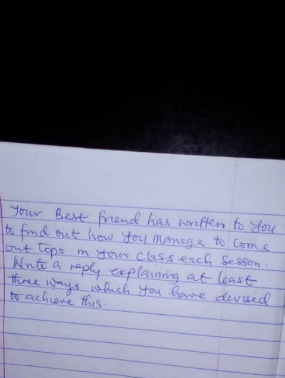 Your Best friend has written to you
to find out how you manage to come
out tops in your class each Sesson.
Write a reply explaining at least
three ways which you have devised
to achieve this.